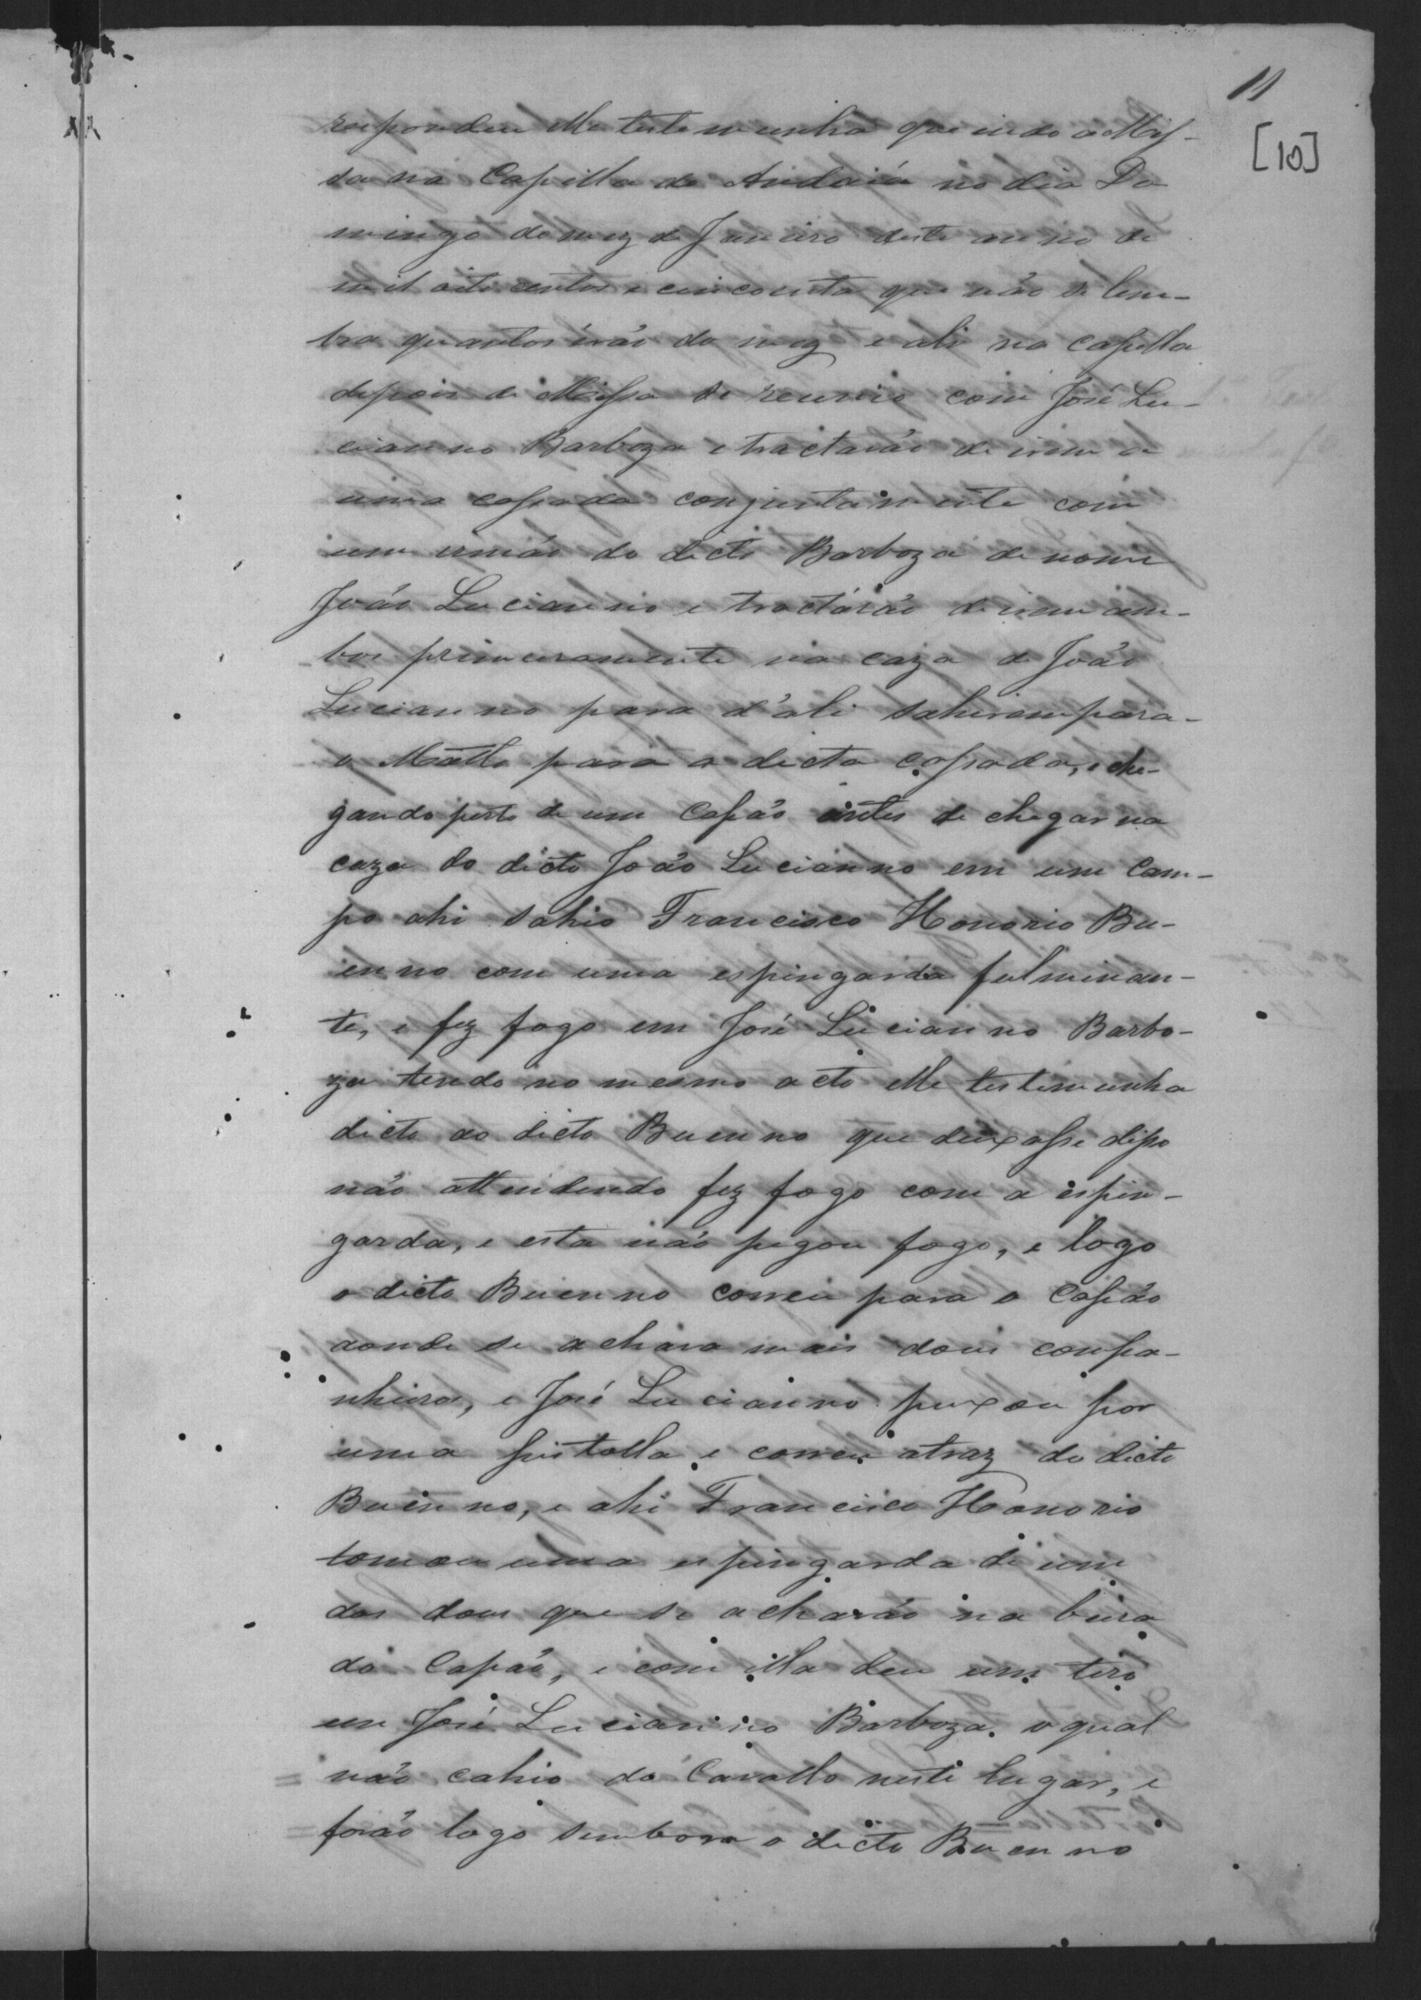 11
[10]
respondeu elle testemunha que indo a Mis-
sa na Capella de Andaiá no dia Do
mingo do mez de Janeiro deste anno de
mil oito centos e cincoenta que não se lem-
bra quantos érão do mez e ali na capella
depois de Missa se reunio com José Lu-
cianno Barboza e tractarão de irem a
uma cassada conjuntamente com
um irmão do dicto Barboza de nome
João Lucianno e tractárão de irem am-
bos primeiramente na caza de João
Lucianno para d'ali sahirem para
o Matto para a dicta cassada, e che-
gando perto de um Capão antes de chegar na
caza do dicto João Lucianno em um Cam-
po ahi sahio Francisco Honorio Bu-
enno com uma espingarda fulminan-
te, e fez fogo em José Lucianno Barbo-
za tendo no mesmo acto elle testemunha
dicto ao dicto Buenno que deixasse disso
não attendendo fez fogo com a espin-
garda, e esta não pegou fogo, e logo
o dicto Buenno correu para o Capão
aonde se achava mais dous compa-
nheiros, e José Lucianno puxou por
uma pistolla e correu atraz do dicto
Buenno, e ahi Francisco Honorio
tomou uma espingarda de um
dos dous que se acharão na beira
do Capão, e com ella deu um tiro
em José Lucianno Barboza, o qual
não cahio do Cavallo neste lugar, e
forão logo sembora o dicto Buenno